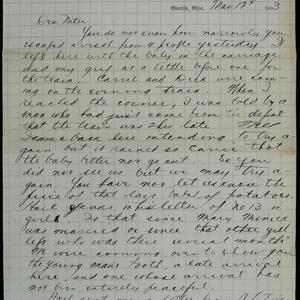 Oberlin, Ohio, May 12th 1893
Dear Pater,
You do not know how narrowly you
escaped a visit from 4 people yesterday. I
left here with the baby in the carriage
and my girl at a little before one for
the train. Carrie and Dick were com-
ing on the evening train. When I
reached the corner, I was told by a
man who had just come from the depot
that the train was late.
came back here intending to try a-
gain but it rained so Carrie that
the baby better not go out. So you
did not see us but we may try a-
gain. You have not let us know the
price of that last lot of potatoes
in his letter of
girl? Is that since Mary
was married or since that other girl
left who was there several months?
We were coming over to show you
the young man's tooth, a late arrival
here, and one whose arrival has
not been entirely peaceful.